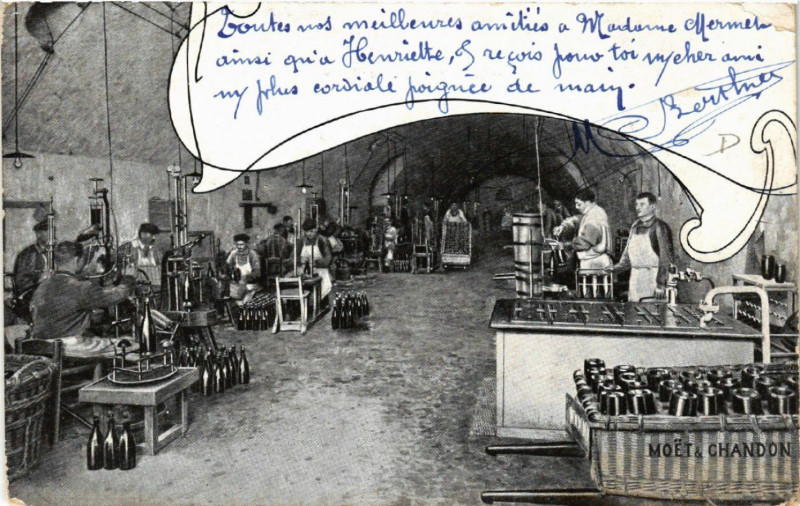 Toutes nos meilleures amitiés a Madame Mermet
ainsi qu'a Henriette, & reçois pour toi m cher ami
m plus cordiale poignée de main.
M Berthet
D
MOËT & CHANDON